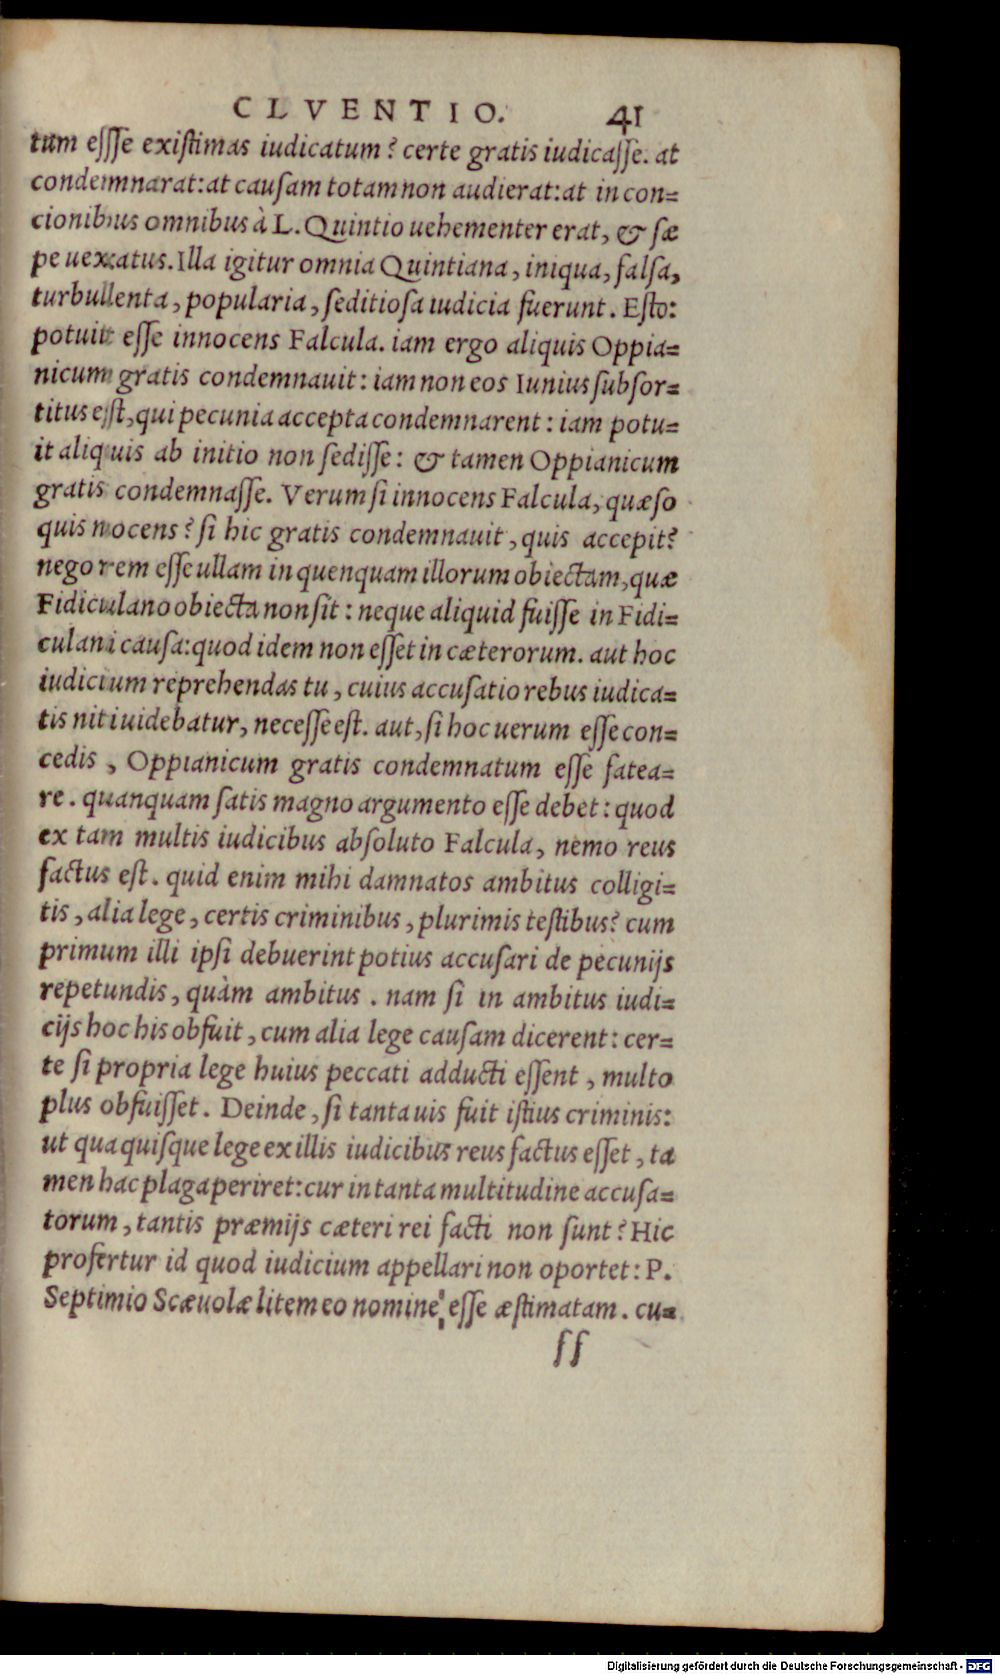 CLVENTIO. 41
tum esse existimas iudicatum? certe gratis iudicasse. at
condemnarat: at causam totam non audierat: at in con=
cionibus omnibus à L. Quintio uehementer erat, & sæ
pe uexatus. Illa igitur omnia Quintiana, iniqua, falsa,
turbulenta, popularia, seditiosa iudicia fuerunt. Esto:
potuit esse innocens Falcula. iam ergo aliquis Oppia=
nicum gratis condemnauit: iam non eos Iunius subsor=
titus est, qui pecunia accepta condemnarent: iam potu=
it aliquis ab initio non sedisse: & tamen Oppianicum
gratis condemnasse. Verum si innocens Falcula, quæso
quis nocens? si hic gratis condemnauit, quis accepit?
nego rem esse ullam in quenquam illorum obiectam, quæ
Fidiculano obiecta non sit: neque aliquid fuisse in Fidi=
culani causa: quod idem non esset in cæterorum. aut hoc
iudicium reprehendas tu, cuius accusatio rebus iudica=
tis niti uidebatur, necesse est. aut, si hoc uerum esse con=
cedis, Oppianicum gratis condemnatum esse fatea=
re. quanquam satis magno argumento esse debet: quod
ex tam multis iudicibus absoluto Falcula, nemo reus
factus est. quid enim mihi damnatos ambitus colligi=
tis, alia lege, certis criminibus, plurimis testibus? cum
primum illi ipsi debuerint potius accusari de pecunijs
repetundis, quàm ambitus. nam si in ambitus iudi=
cijs hoc his obfuit, cum alia lege causam dicerent: cer=
te si propria lege huius peccati adducti essent, multo
plus obfuisset. Deinde, si tanta uis fuit istius criminis:
ut qua quisque lege ex illis iudicibus reus factus esset, ta
men hac plaga periret: cur in tanta multitudine accusa=
torum, tantis præmijs cæteri rei facti non sunt? Hic
profertur id quod iudicium appellari non oportet: P.
Septimio Scæuolæ litem eo nomine esse æstimatam. cu=
ss
Digitalisierung gefördert durch die Deutsche Forschungsgemeinschaft - DFG